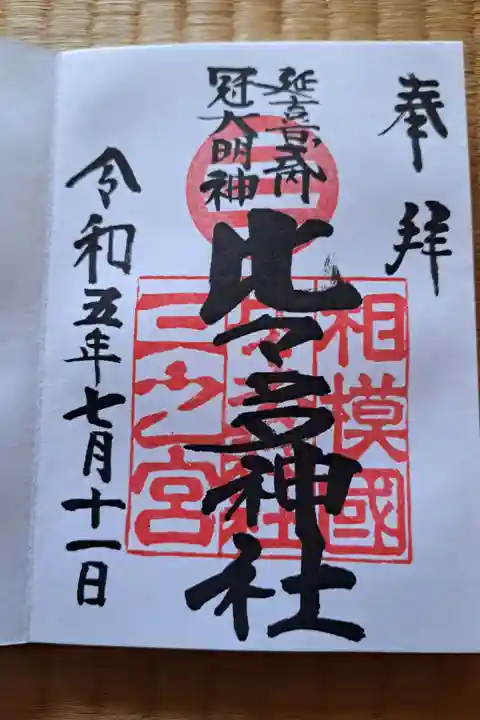 奉拝
延喜式
冠大明神
比々多神社
相模國
三之宮
令和五年七月十一日